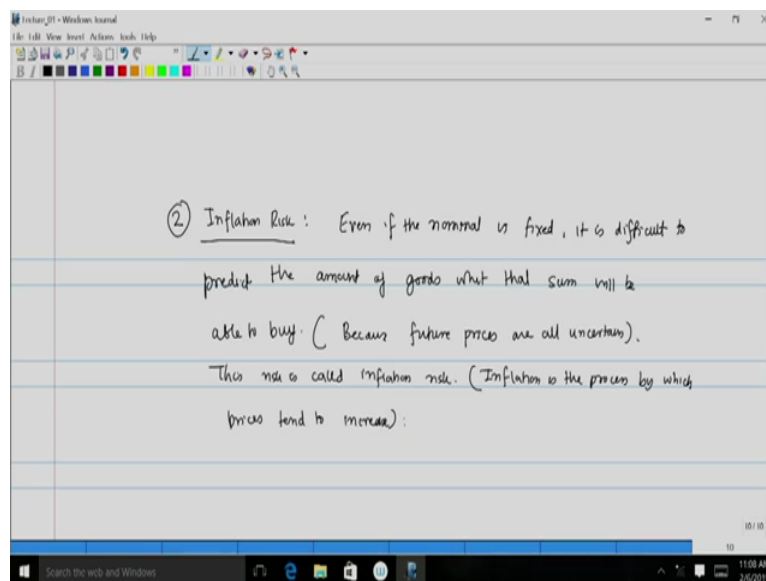 Lecture_01 - Windows Journal
File Edit View Insert Actions Tools Help
B I
② Inflation Risk : Even if the nominal is fixed, it is difficult to
predict the amount of goods what that sum will be
able to buy. ( Because future prices are all uncertain).
This risk is called inflation risk. (Inflation is the process by which
prices tend to increase) :
10/10
10
Search the web and Windows
11:08 AM